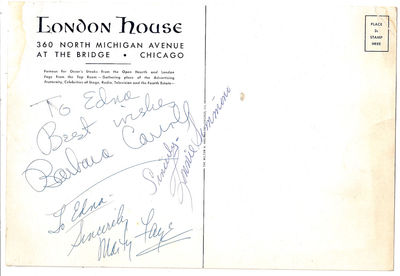 London House
360 NORTH MICHIGAN AVENUE
AT THE BRIDGE • CHICAGO
Famous for Diner's Steaks from the Open Hearth and London
Fogs from the Tap Room—Gathering place of the Advertising
Fraternity, Celebrities of Stage, Radio, Television and the Fourth Estate—
PLACE
2c
STAMP
HERE
To Edna
Best wishes
Barbara Carroll
Sincerely
Simmons
To Edna-
Sincerely
Marty Faye